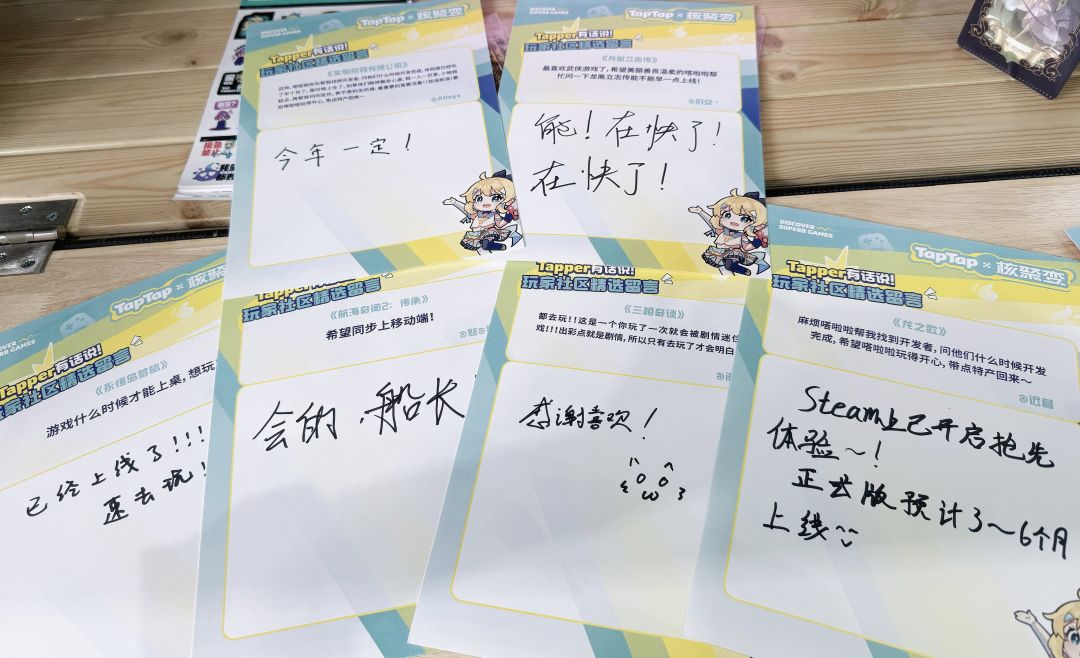 DISCOVER
SUPERB GAMES
TapTap × 核聚变
Tapper有话说!
玩家社区精选留言
《生物招待有限公司》
@Alleyx
今年一定!
DISCOVER
SUPERB GAMES
TapTap × 核聚变
Tapper有话说!
玩家社区精选留言
《龙胤立志传》
最喜欢武侠游戏了,希望美丽善良温柔的塔啦啦帮
忙问一下龙胤立志传能不能早一点上线!
能!在快了!
在快了!
DISCOVER
SUPERB GAMES
TapTap × 核聚变
Tapper有话说!
玩家社区精选留言
《永恒岛梦旅》
游戏什么时候才能上桌,想玩
已经上线了!!!
速去玩!
Tapper有话说!
玩家社区精选留言
《航海奇闻2:传承》
希望同步上移动端!
会的,船长
Tapper有话说!
玩家社区精选留言
《三相奇谈》
都去玩!!这是一个你玩了一次就会被剧情迷住
戏!!!出彩点就是剧情,所以只有去玩了才会明白
感谢喜欢!
DISCOVER
SUPERB GAMES
TapTap × 核聚变
Tapper有话说!
玩家社区精选留言
《龙之歌》
麻烦塔啦啦帮我找到开发者,问他们什么时候开发
完成,希望塔啦啦玩得开心,带点特产回来~
@迟暮
Steam上已开启抢先
体验~!
正式版预计3~6个月
上线